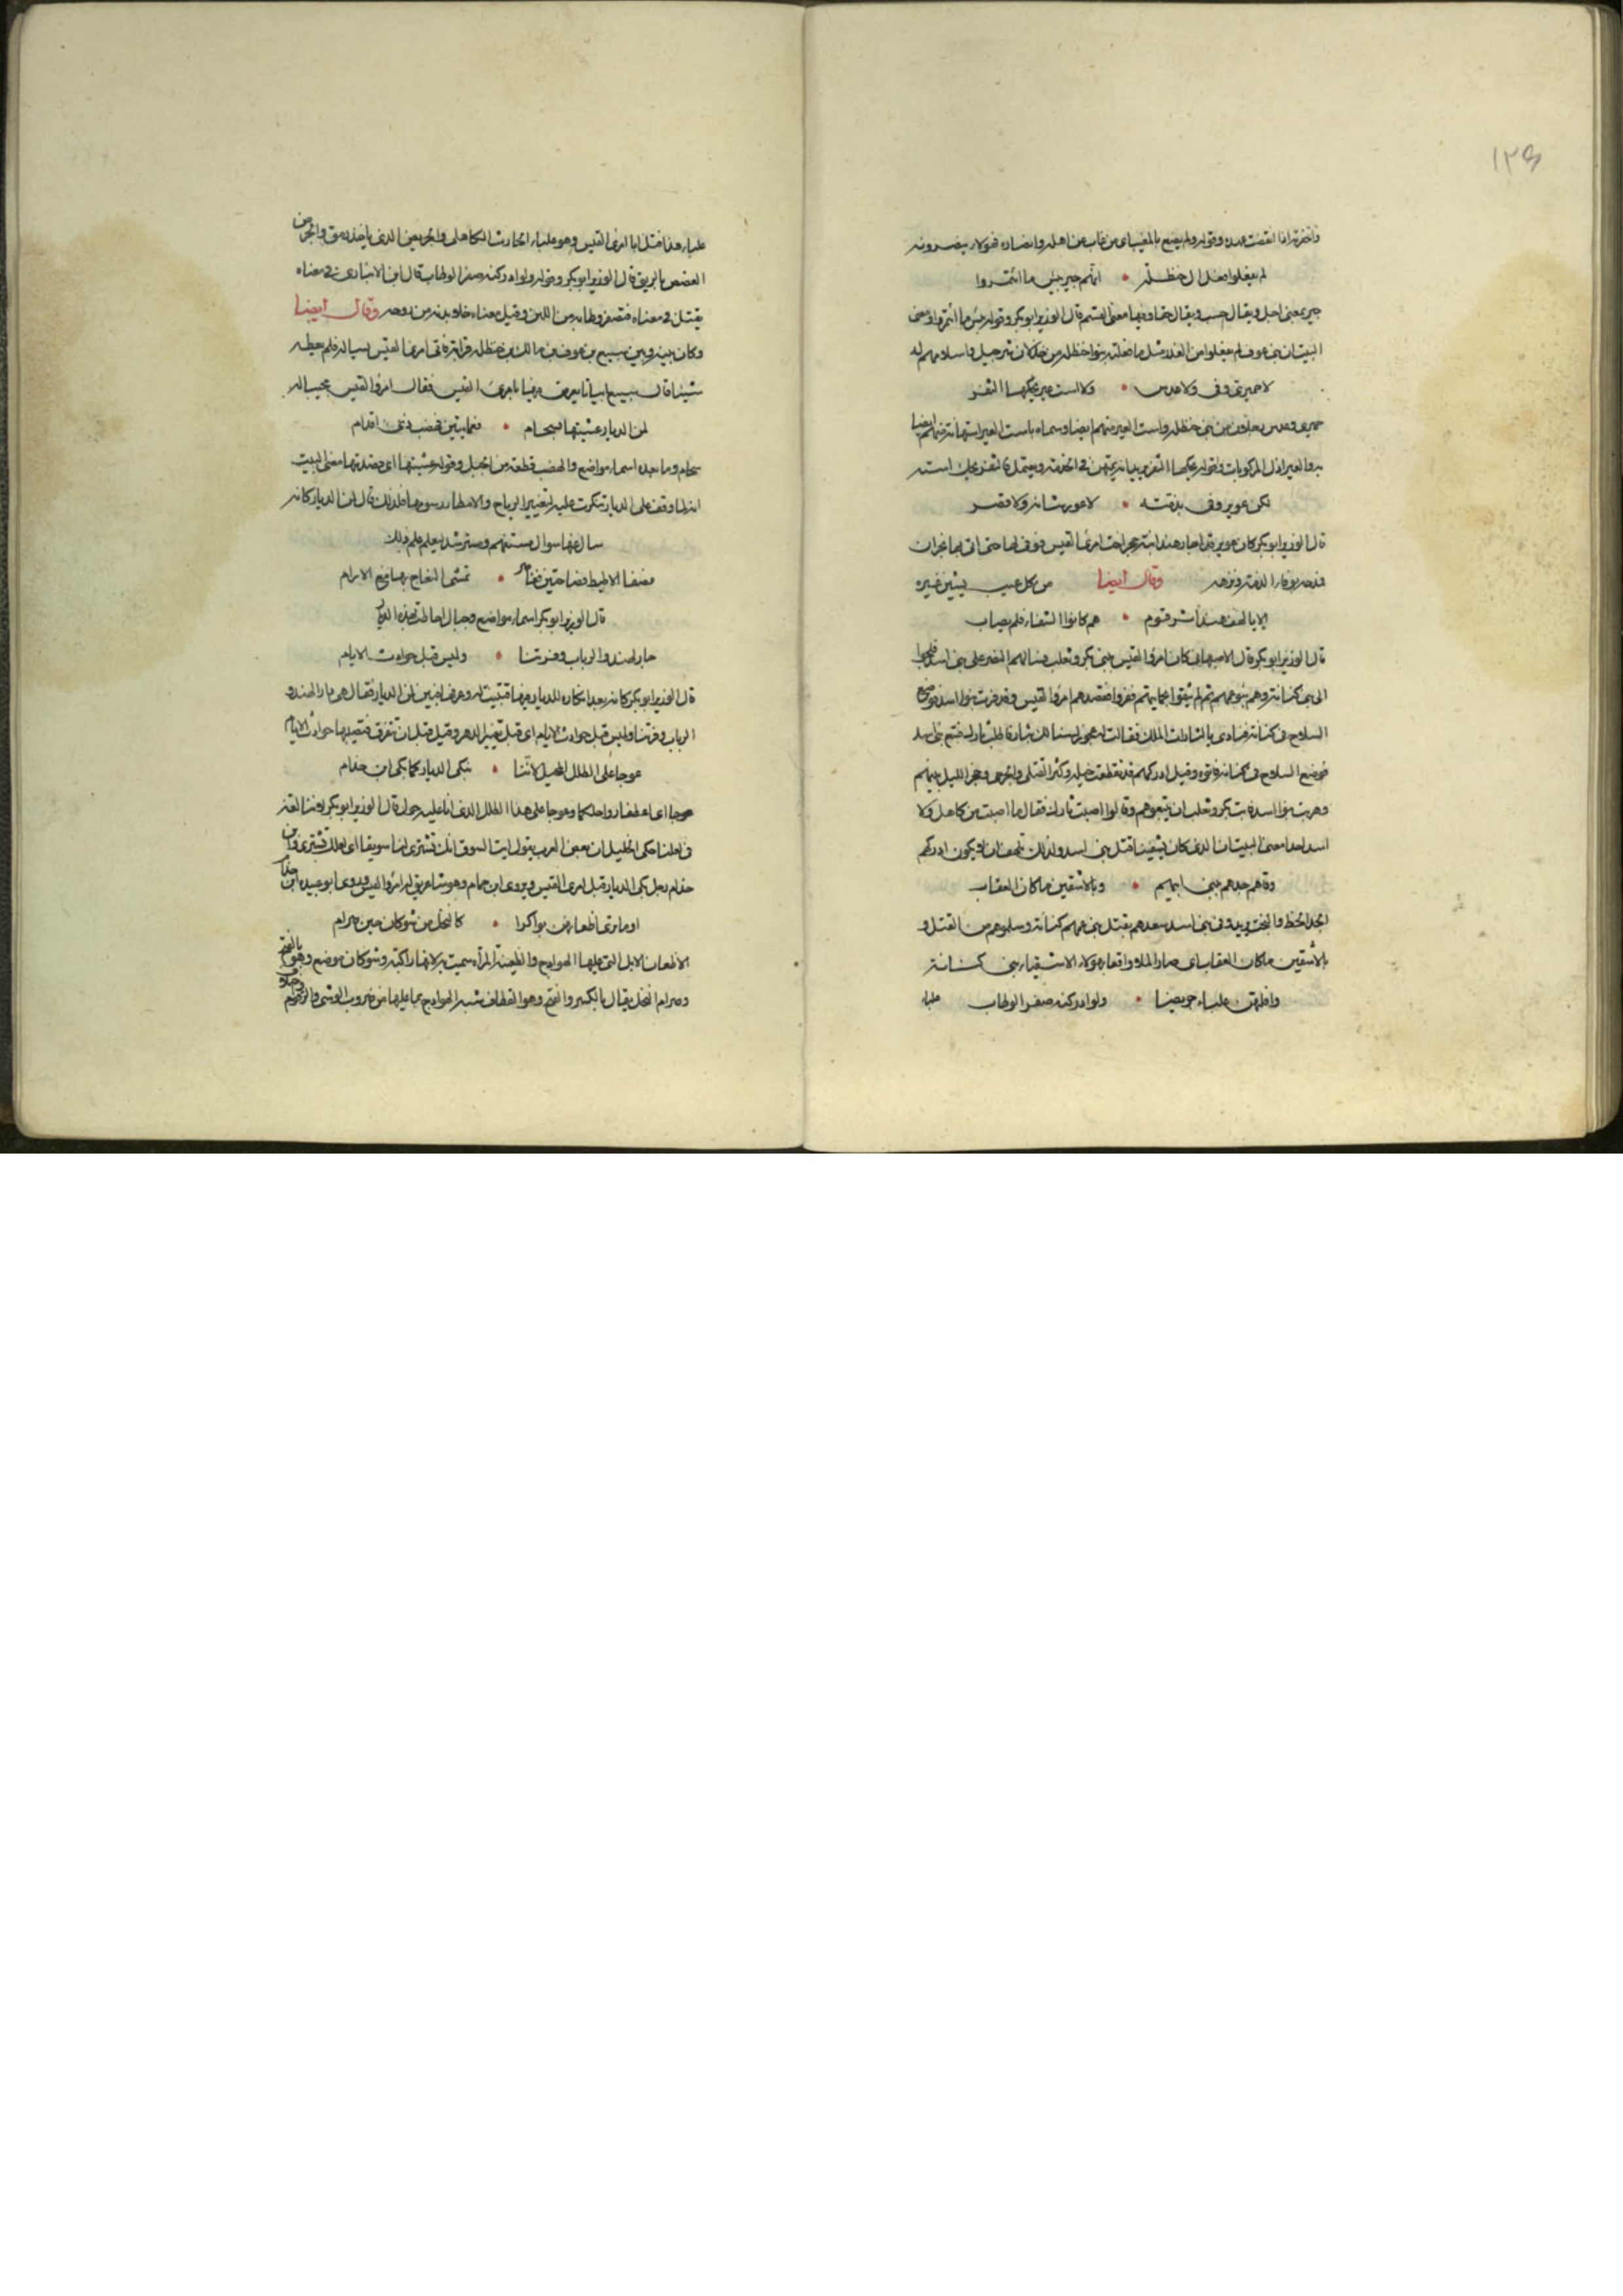 ١٢٤
واخفرته اذا انقضت عهده وقوله ولم يضيع بالمغيب اى من غاب عن اهله وانصاره فهولاء ينصرونه
لم يفعلوا فعل ال حنظلة • انهم جير بئس ما ائتمروا
جير بمعنى اجل ويقال حسب ويقال حقا وفيها معنى القسم قال الوزير ابو بكر وقوله بئس ما ائتمروا ومعنى
البيت ان بنى عوف لم يفعلوا من الغدر مثل ما فعلته بنوا حنظلة من شرحبيل واسلامهم له
لا حميرى وفى ولا عدس • ولا است عير يحكها الثفر
حميرى وعدس رجلان من بنى حنظلة واست العير منهم ايضا وسماه باست العير استهانة منهم ايضا
والعير اذل المركوبات وقوله يحكها الثفر
لكن عوير وفى بذمته • لا عور شانه ولا قصر
قال الوزير ابو بكر كان عوير قد اجار هند ابنة حجر اخت امرئ القيس فوفى لها حتى اتى بها نجران
فمدحه بوفاء الذمة ونزهه من كل عيب يشين غيره وقال ايضا
الا يا لهف هند اثر قوم • هم كانوا الشفاء فلم يصابوا
قال الوزير ابو بكر قال الاصبهانى كان امرؤ القيس بنى بكر وتغلب وسالهم النصر على بنى اسد
الى بنى كنانة وهم بنو عمهم ثم لم يثقوا بحمايتهم ففروا فقصدهم امرؤ القيس وقد فرت بنوا اسد فوضع
السلاح فى كنانة ونادى يالثارات الملك فقالت له عجوز لسنا لك بثار فاطلب ثارك فتتبع بنى اسد
فوضع السلاح فى كنانة وقيل ادركهم قد تقطعت خيله وكثر القتلى والجرحى وحجز الليل بينهم
وهربت بنوا اسد فابت بكر وتغلب ان يتبعوهم وقالوا اصبت ثارك فقال ما اصبت من كاهل ولا
اسد احدا معنى البيت ان الذى كان يشفينا قتل بنى اسد ولذلك تلهف ان لا يكون ادركهم
وقاهم جدهم ببنى ابيهم • وبالاشقين ما كان العقاب
الجد الحظ والبخت يريد وفى بنى اسد سعدهم بقتل بنى عمهم كنانة وسلبوهم من القتل و
بالاشقين ما كان العقاب اى صار الملاذ واقعا بهولاء الاشقياء بنى كنانة
وافلتهن علباء جريضا • ولو ادركنه صفر الوطاب
علباء
علباء هذا قتل ابا امرئ القيس وهو علباء ابن الحارث الكاهلى والجريض الذى ياخذ بريق والجرض من
الغصص بالريق قال الوزير ابو بكر وقوله ولو ادركنه صفر الوطاب قال ابن الانبارى فى معناه
يقتل فى معناه فتصفر وطابه من اللبن وقيل معناه خلا بدنه من روحه وقال ايضا
وكان بينه وبين سبيع بن عوف بن مالك بن حنظلة قرابة فاتى امرئ القيس يساله فلم يعطه
شيئا قال سبيع ابياتا يعرض فيها بامرئ القيس فقال امرؤ القيس مجيبا له
لمن الديار غشيتها بسحام • فعمايتين فهضب ذى اقدام
سحام وما بعده اسماء مواضع والهضب قطعة من الجبل وقوله غشيتها اى قصدتها معنى البيت
انه لما وقف على الديار تنكرت عليه لتغيير الرياح والامطار رسومها فلذلك قال لمن الديار كانه
سال عنها سوال مستفهم ومسترشد ليعلم علم ذلك
فصفا الاطيط فصاحتين فغاضر • تمشى النعاج بها مع الارام
قال الوزير ابو بكر اسماء مواضع وجبال احاطت بهذه الديار
دار لهند والرباب وفرتنا • ولميس قبل حوادث الايام
قال الوزير ابو بكر كانه بعد انكاره للديار فيها تثبت له وعرف فبين لمن الديار فقال هى دار لهند و
الرباب وفرتنا ولميس قبل حوادث الايام اى قبل تغيير الدهر وقيل قبل ان تتفرق فتصيبها حوادث الايام
عوجا على الطلل المحيل لاننا • نبكى الديار كما بكى ابن حذام
عوجا اى اعطفا رواحلكما وعوجا على هذا الطلل الذى اتى عليه حول قال الوزير ابو بكر لاننا لغة
فى لعلنا حكى الخليل ان بعض العرب يقول ايت السوق انك تشترى لنا سويقا اى لعلك تشترى وابن
حذام رجل بكى الديار قبل امرئ القيس ويروى ابن حمام وهو شاعر يقال له امرؤ القيس وروى ابو عبيدة ابن حذام
او ما ترى اظعانهن بواكرا • كالنخل من شوكان حين صرام
الاظعان الابل التى عليها الهوادج والظعينة المراة سميت به لانها راكبته وشوكان موضع وهو بالفتح
وصرام النخل يقال بالكسر والفتح وهو القطاف شبه الهوادج بما عليها من ضروب الوشى والرقوم